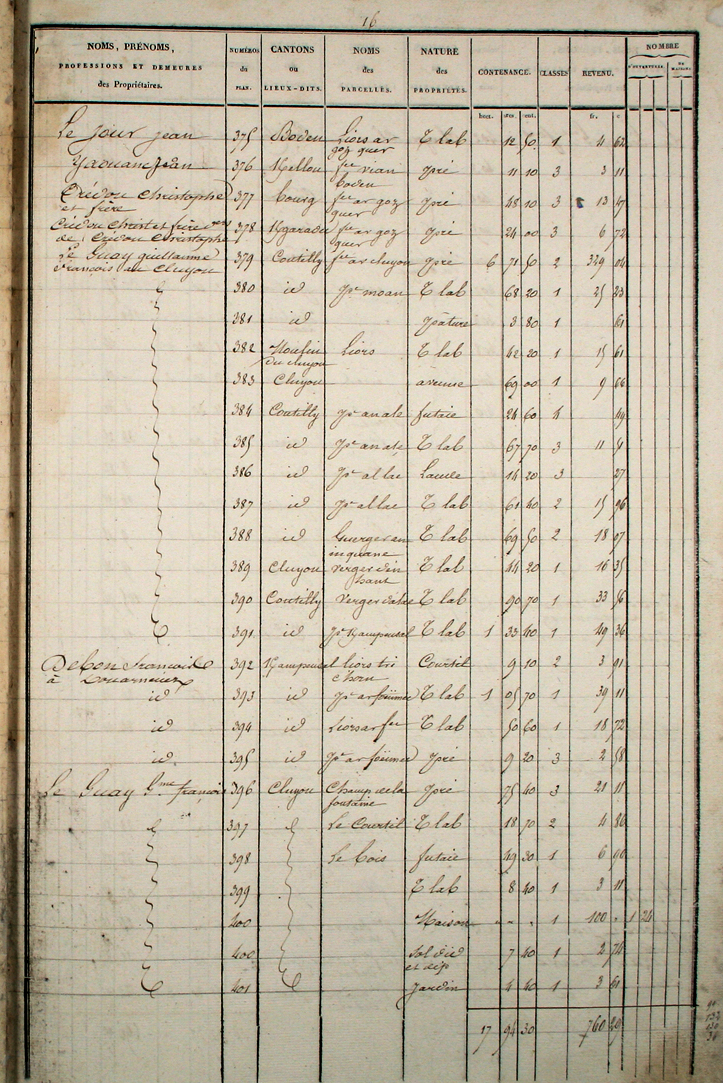 16
NOMS, PRÉNOMS, PROFESSIONS ET DEMEURES des Propriétaires. NUMÉROS du PLAN. CANTONS ou LIEUX-DITS. NOMS des PARCELLES. NATURE des PROPRIÉTÉS. CONTENANCE. CLASSES REVENU. NOMBRE D'OUVERTURES DE MAISONS
hect. ares. cent. fr. c
Le Jour jean 375 Boden Liors ar goz quer T lab 12 50 1 4 62
Yaouanc Jean 376 Kellou vian boden pré 11 10 3 3 11
Crédou Christophe et frère 377 bourg ar goz quer pré 48 10 3 13 47
de Crédou Christophe 378 Kgaradec ar goz quer pré 24 00 3 6 72
Le Guay guillaume François au Cluyou 379 Coutilly ar cluyou pré 6 71 50 2 329 04
380 id pc moan T lab 68 20 1 25 23
381 id pâture 3 80 1 61
382 Moulin du cluyou Liors T lab 42 20 1 15 61
383 Cluyou avenue 69 00 1 9 66
384 Coutilly pc an ale futaie 24 60 49
385 id pc an ale T lab 67 70 3 11 51
386 id pc al lae Lande 14 20 3 27
387 id pc al lae T lab 61 40 2 15 96
388 id T lab 69 50 2 18 07
389 Cluyou verger d'en haut T lab 44 20 1 16 35
390 Coutilly verger T lab 90 70 1 33 56
391 id T lab 1 33 40 1 49 36
Debon François à Douarnenez 392 liors tri Courtil 9 10 2 3 91
id 393 id pc ar T lab 1 05 70 1 39 11
id 394 id Liors ar T lab 50 60 1 18 72
id 395 id pc ar pré 9 20 3 2 58
Le Guay Gme françois 396 Cluyou Champ de la fontaine pré 75 40 3 21 11
397 Le Courtil T lab 18 70 2 4 86
398 Le bois futaie 49 30 1 6 90
399 T lab 8 40 1 3 11
400 Maison " " " 1 100 " 1 24
400 sol et dép 7 40 1 2 74
401 Jardin 4 40 1 3 61
17 94 30 760 29